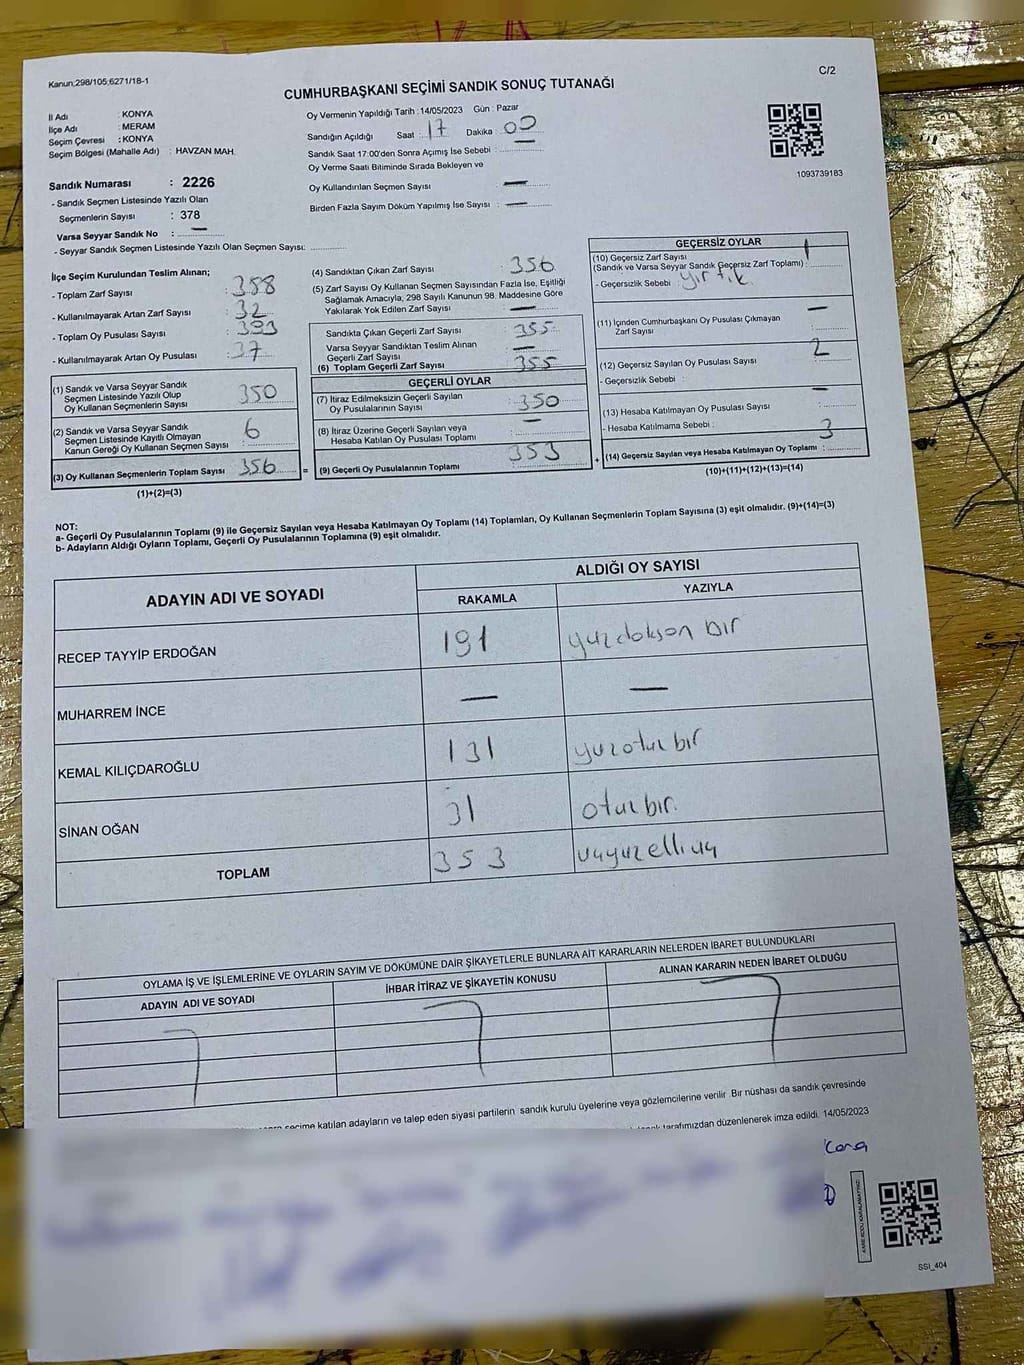 Kanun;298/105;6271/18-1
C/2
CUMHURBAŞKANI SEÇİMİ SANDIK SONUÇ TUTANAĞI
İl Adı : KONYA
İlçe Adı : MERAM
Seçim Çevresi : KONYA
Seçim Bölgesi (Mahalle Adı) : HAVZAN MAH.
Sandık Numarası : 2226
- Sandık Seçmen Listesinde Yazılı Olan
Seçmenlerin Sayısı : 378
Varsa Seyyar Sandık No : —
- Seyyar Sandık Seçmen Listesinde Yazılı Olan Seçmen Sayısı:
Oy Vermenin Yapıldığı Tarih : 14/05/2023 Gün : Pazar
Sandığın Açıldığı Saat : 17 Dakika : 00
Sandık Saat 17:00'den Sonra Açımış İse Sebebi : —
Oy Verme Saati Bitiminde Sırada Bekleyen ve
Oy Kullandırılan Seçmen Sayısı —
Birden Fazla Sayım Döküm Yapılmış İse Sayısı : —
1093739183
İlçe Seçim Kurulundan Teslim Alınan;
- Toplam Zarf Sayısı : 388
- Kullanılmayarak Artan Zarf Sayısı : 32
- Toplam Oy Pusulası Sayısı : 393
- Kullanılmayarak Artan Oy Pusulası : 37
(1) Sandık ve Varsa Seyyar Sandık
Seçmen Listesinde Yazılı Olup
Oy Kullanan Seçmenlerin Sayısı : 350
(2) Sandık ve Varsa Seyyar Sandık
Seçmen Listesinde Kayıtlı Olmayan
Kanun Gereği Oy Kullanan Seçmen Sayısı : 6
(3) Oy Kullanan Seçmenlerin Toplam Sayısı : 356
(1)+(2)=(3)
=
(4) Sandıktan Çıkan Zarf Sayısı : 356
(5) Zarf Sayısı Oy Kullanan Seçmen Sayısından Fazla İse, Eşitliği
Sağlamak Amacıyla; 298 Sayılı Kanunun 98. Maddesine Göre
Yakılarak Yok Edilen Zarf Sayısı : —
Sandıkta Çıkan Geçerli Zarf Sayısı : 355
Varsa Seyyar Sandıktan Teslim Alınan
Geçerli Zarf Sayısı : —
(6) Toplam Geçerli Zarf Sayısı : 355
GEÇERLİ OYLAR
(7) İtiraz Edilmeksizin Geçerli Sayılan
Oy Pusulalarının Sayısı : 350
(8) İtiraz Üzerine Geçerli Sayılan veya
Hesaba Katılan Oy Pusulası Toplamı : —
(9) Geçerli Oy Pusulalarının Toplamı : 353
+
GEÇERSİZ OYLAR
(10) Geçersiz Zarf Sayısı
(Sandık ve Varsa Seyyar Sandık Geçersiz Zarf Toplamı) : 1
- Geçersizlik Sebebi : yırtık
(11) İçinden Cumhurbaşkanı Oy Pusulası Çıkmayan
Zarf Sayısı : —
(12) Geçersiz Sayılan Oy Pusulası Sayısı : 2
- Geçersizlik Sebebi :
(13) Hesaba Katılmayan Oy Pusulası Sayısı : —
- Hesaba Katılmama Sebebi :
(14) Geçersiz Sayılan veya Hesaba Katılmayan Oy Toplamı : 3
(10)+(11)+(12)+(13)=(14)
NOT:
a- Geçerli Oy Pusulalarının Toplamı (9) ile Geçersiz Sayılan veya Hesaba Katılmayan Oy Toplamı (14) Toplamları, Oy Kullanan Seçmenlerin Toplam Sayısına (3) eşit olmalıdır. (9)+(14)=(3)
b- Adayların Aldığı Oyların Toplamı, Geçerli Oy Pusulalarının Toplamına (9) eşit olmalıdır.
ADAYIN ADI VE SOYADI
ALDIĞI OY SAYISI
RAKAMLA YAZIYLA
RECEP TAYYİP ERDOĞAN 191 yüzdoksan bir
MUHARREM İNCE — —
KEMAL KILIÇDAROĞLU 131 yüzotuz bir
SİNAN OĞAN 31 otuz bir.
TOPLAM 353 üçyüzelli üç
OYLAMA İŞ VE İŞLEMLERİNE VE OYLARIN SAYIM VE DÖKÜMÜNE DAİR ŞİKAYETLERLE BUNLARA AİT KARARLARIN NELERDEN İBARET BULUNDUKLARI
ADAYIN ADI VE SOYADI İHBAR İTİRAZ VE ŞİKAYETİN KONUSU ALINAN KARARIN NEDEN İBARET OLDUĞU
seçime katılan adayların ve talep eden siyasi partilerin sandık kurulu üyelerine veya gözlemcilerine verilir. Bir nüshası da sandık çevresinde
tarafımızdan düzenlenerek imza edildi. 14/05/2023
KARE KODU KARALAMAYINIZ!
SSI_404